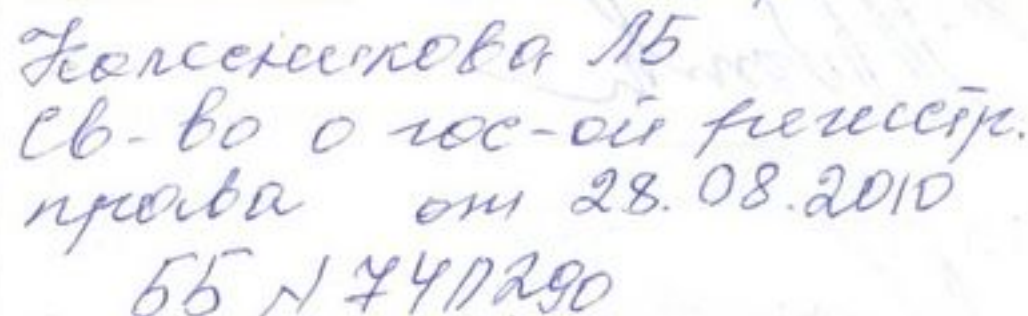 Колесникова ЛБ
Св-во о гос-ой регистр.
права от 28.08.2010
ББ N 74П290